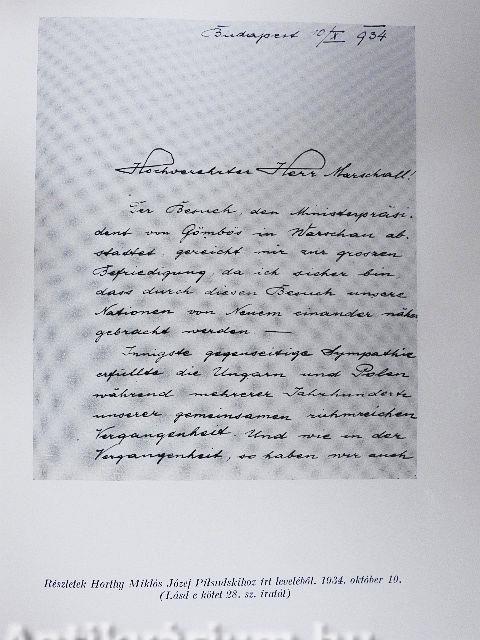 Budapest 10/X 934
Hochverehrter Herr Marschall!
Der Besuch, den Ministerpräsi-
dent von Gömbös in Warschau ab-
stattet, gereicht mir zur grossen
Befriedigung, da ich sicher bin,
dass durch diesen Besuch unsere
Nationen von Neuem einander näher
gebracht werden —
Innigste gegenseitige Sympathie
erfüllte die Ungarn und Polen
während mehrerer Jahrhunderte
unserer gemeinsamen ruhmreichen
Vergangenheit. Und wie in der
Vergangenheit, so haben wir auch
Részletek Horthy Miklós Józej Pilsudskihoz írt leveléből. 1934. október 10.
(Lásd e kötet 28. sz. iratát)
Antikvarium.hu